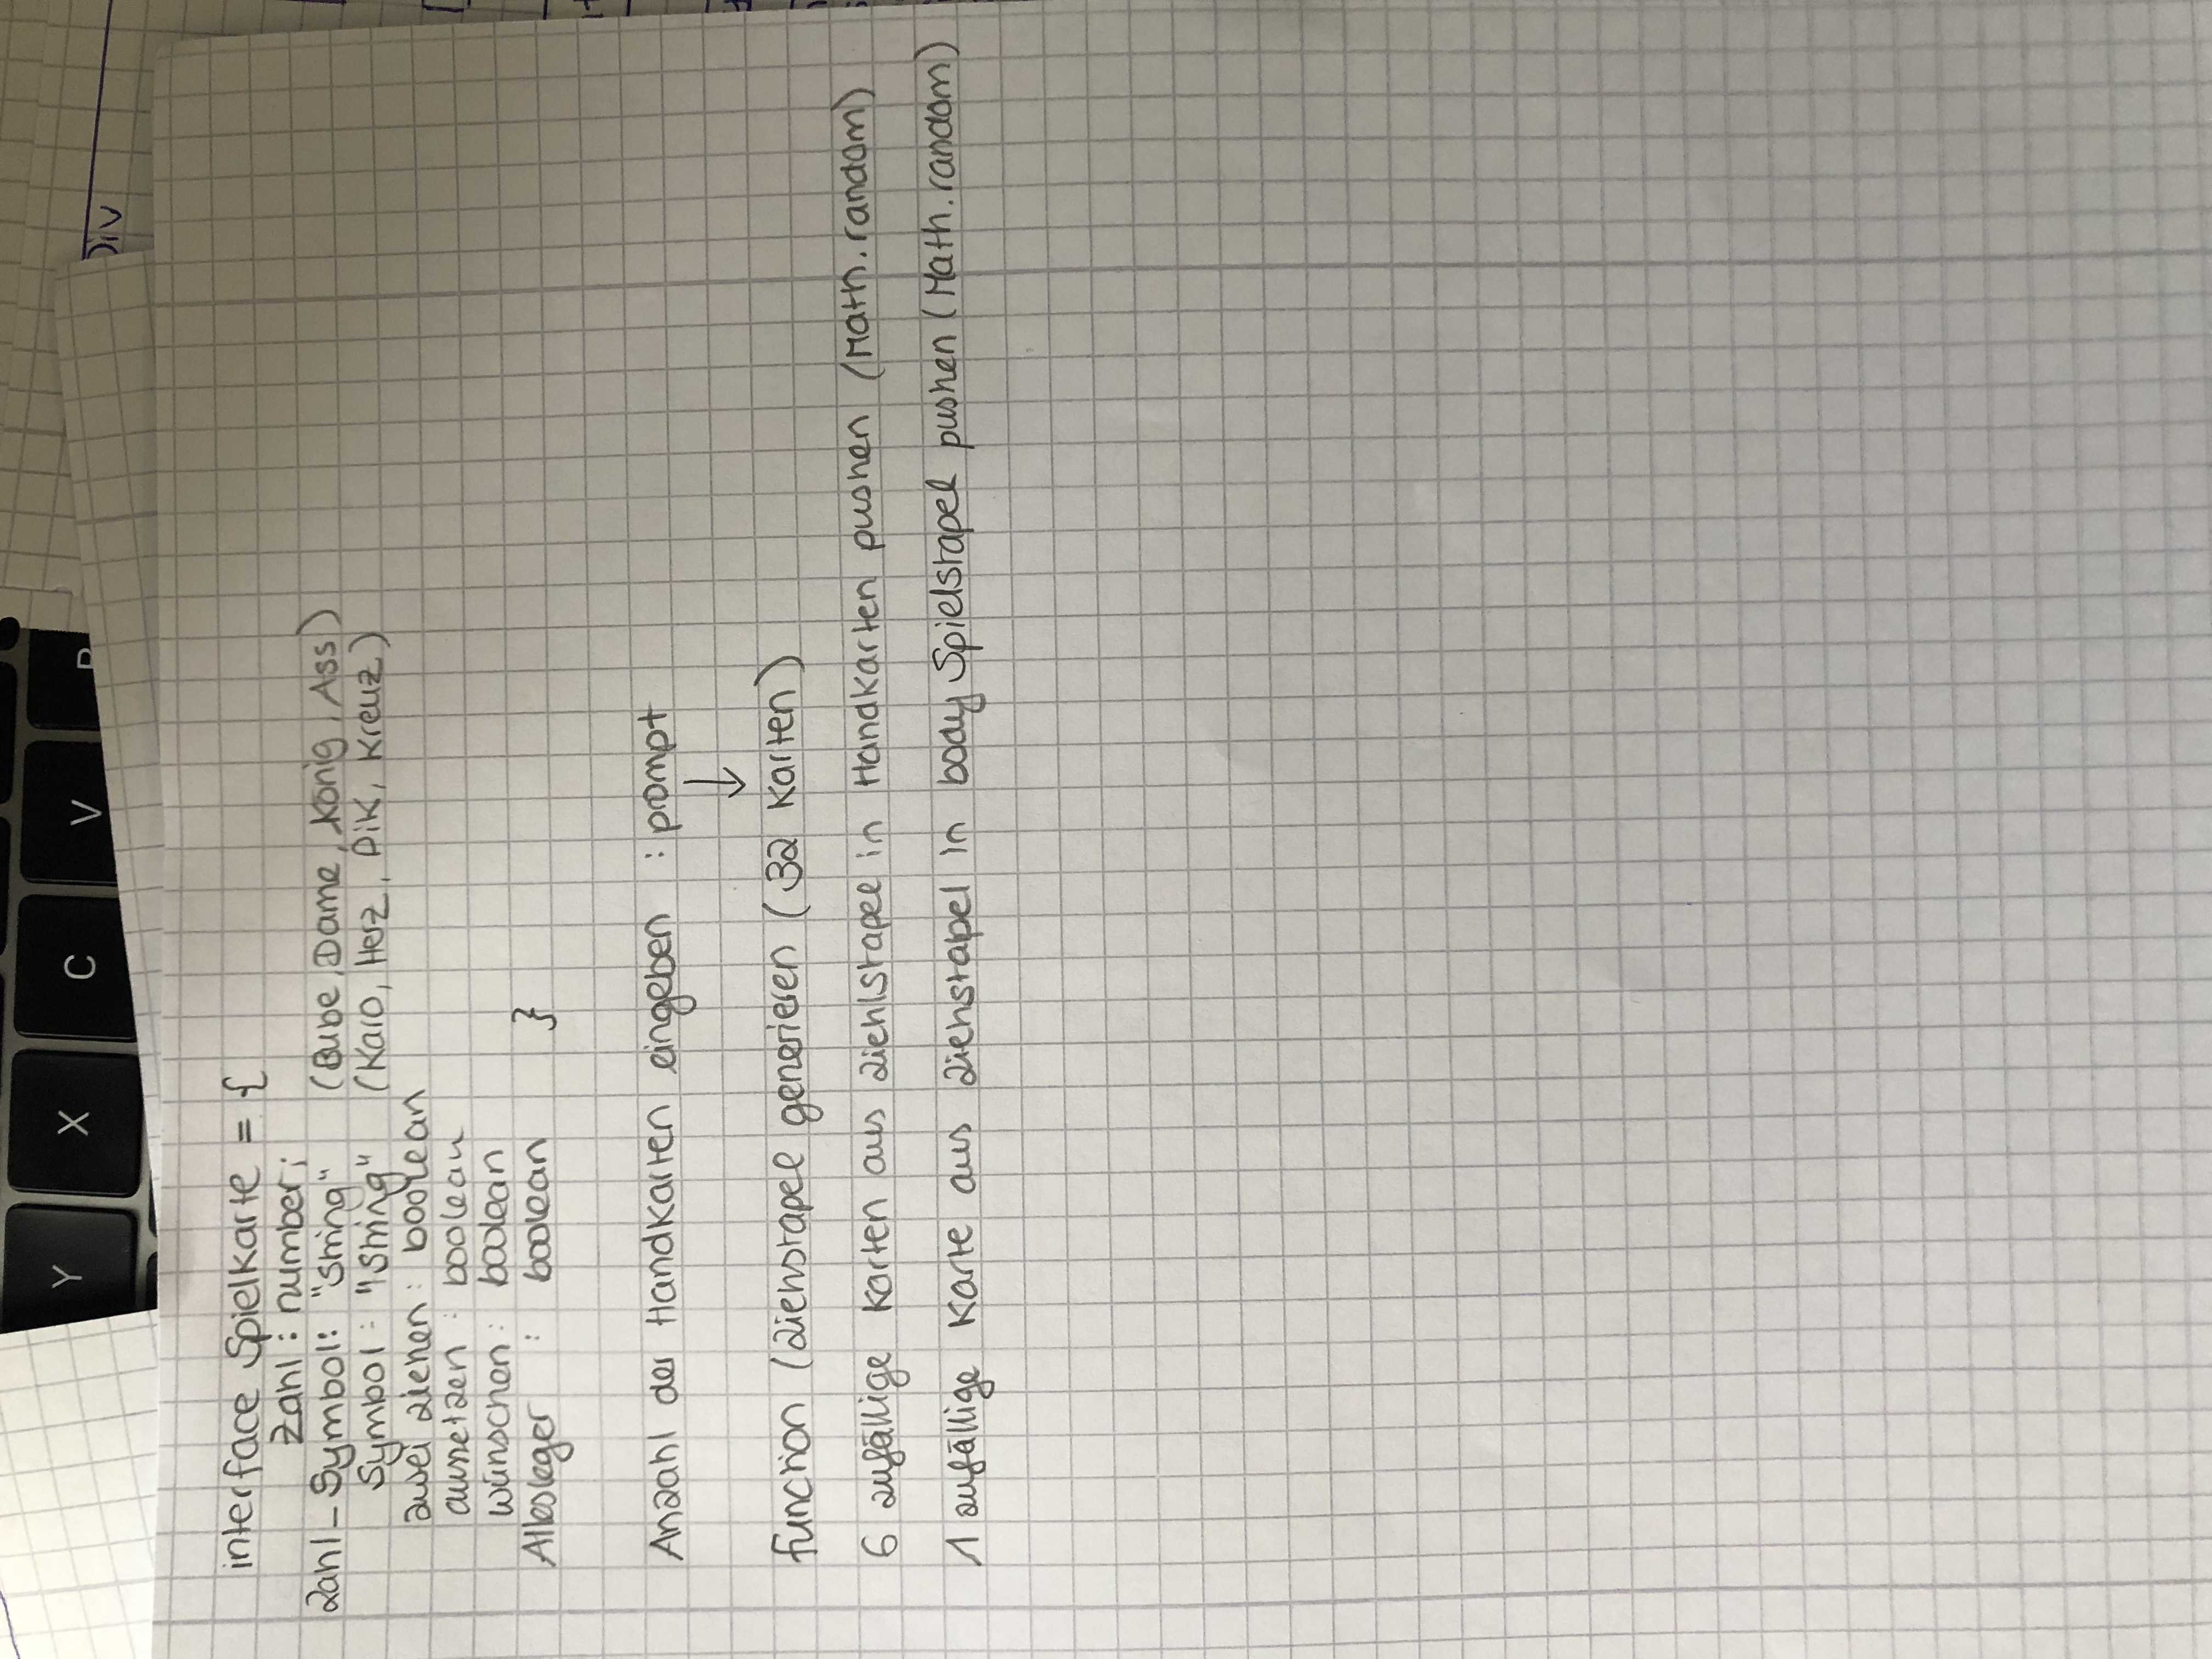 Y X C V
Div
interface Spielkarte = {
Zahl : number;
Zahl-Symbol: "String" (Bube, Dame, König, Ass)
Symbol : "String" (Karo, Herz, Pik, Kreuz)
zwei ziehen : boolean
aussetzen : boolean
wünschen : boolean
Allesleger : boolean }
Anzahl der Handkarten eingeben : prompt
↓
function (Ziehstapel generieren (32 Karten)
6 zufällige Karten aus Ziehlstapel in Handkarten pushen (Math.random)
1 zufällige Karte aus Ziehstapel in body Spielstapel pushen (Math.random)